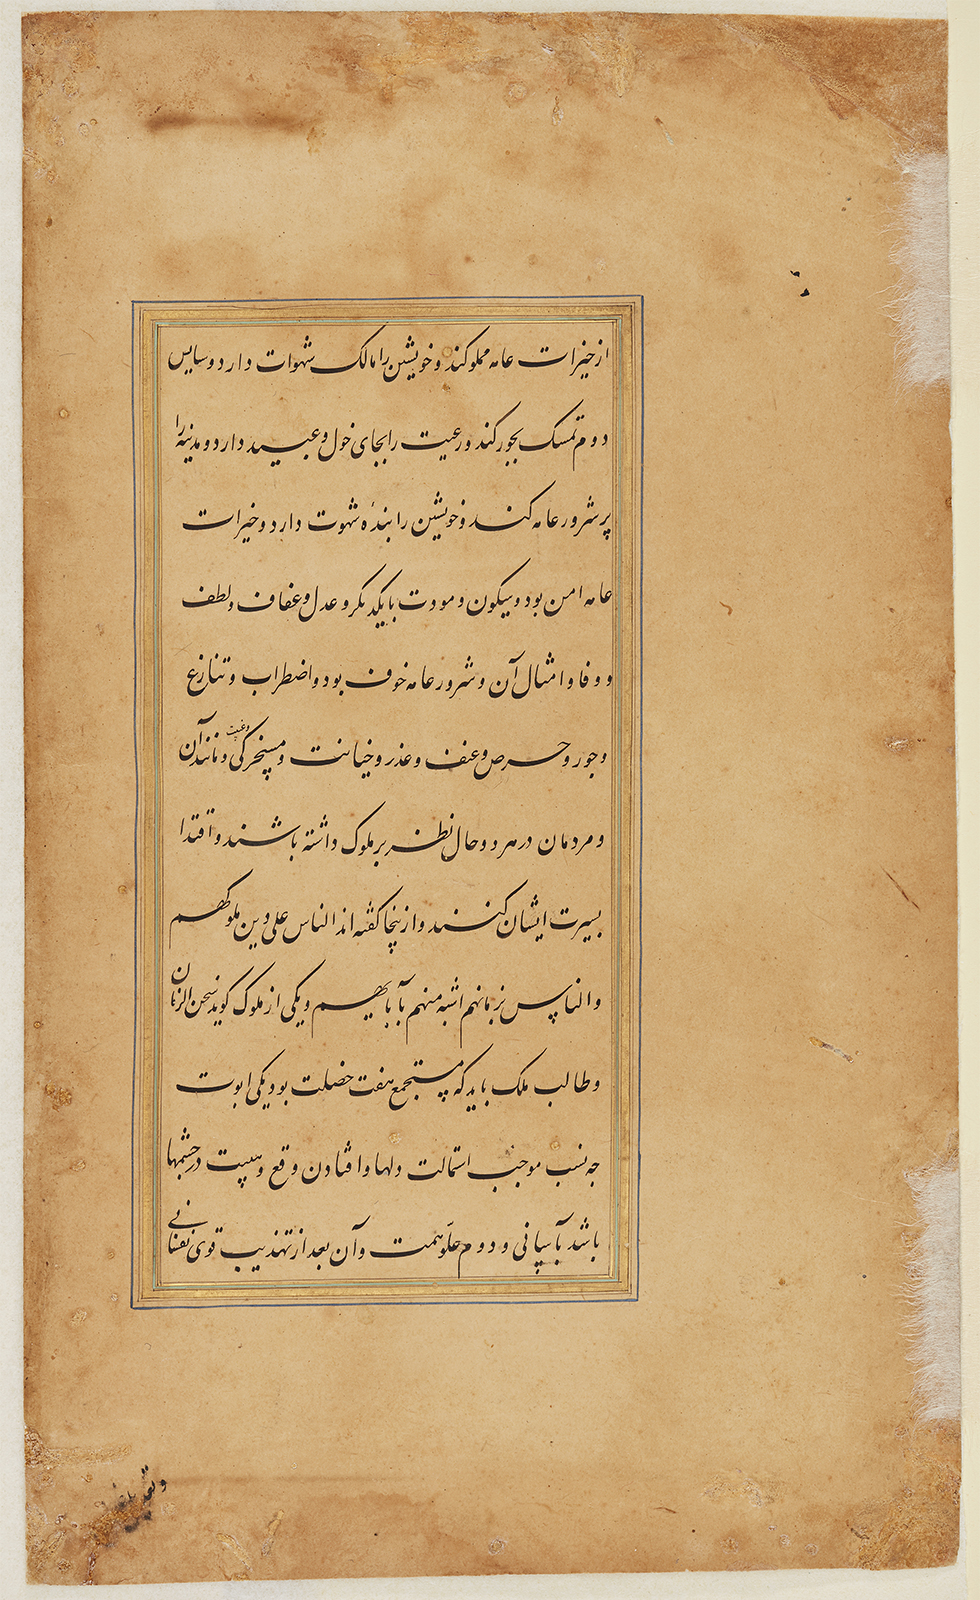 از خیرات عامه مملو کند و خویشتن را مالک شهوات دارد و سایس
دوم تمسک بجور کند و رعیت را بجای خول و عبید دارد و مدینه را
پر شرور عامه کند و خویشتن را بندهٔ شهوت دارد و خیرات
عامه امن بود و سکون و مودت با یکدیگر و عدل و عفاف و لطف
و وفا و امثال آن و شرور عامه خوف بود و اضطراب و تنازع
و جور و حرص و عنف و غدر و خیانت و مسخرگی و غیبت و مانند آن
و مردمان در هر دو حال نظر بر ملوک داشته باشند و اقتدا
بسیرت ایشان کنند و ازینجا گفته اند الناس علی دین ملوکهم
و الناس بزمانهم اشبه منهم بآبایهم و یکی از ملوک گوید نحن الزمان
و طالب ملک باید که مستجمع هفت خصلت بود یکی ابوت
چه نسب موجب استمالت دلها و افتادن وقع و هیبت در چشمها
باشد بآسانی و دوم علو همت و آن بعد از تهذیب قوی نفسانی